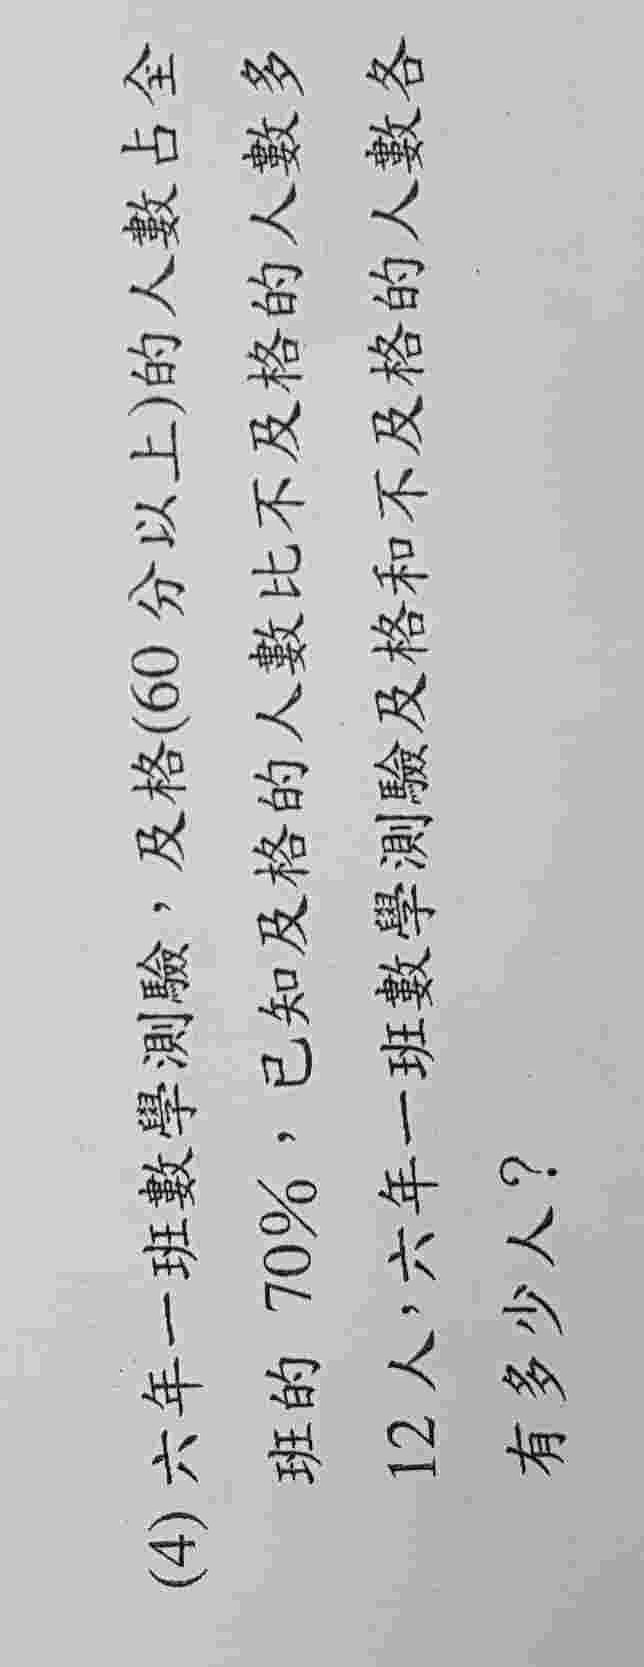 (4) 六年一班數學測驗，及格(60 分以上)的人數占全
班的 70%，已知及格的人數比不及格的人數多
12 人，六年一班數學測驗及格和不及格的人數各
有多少人？